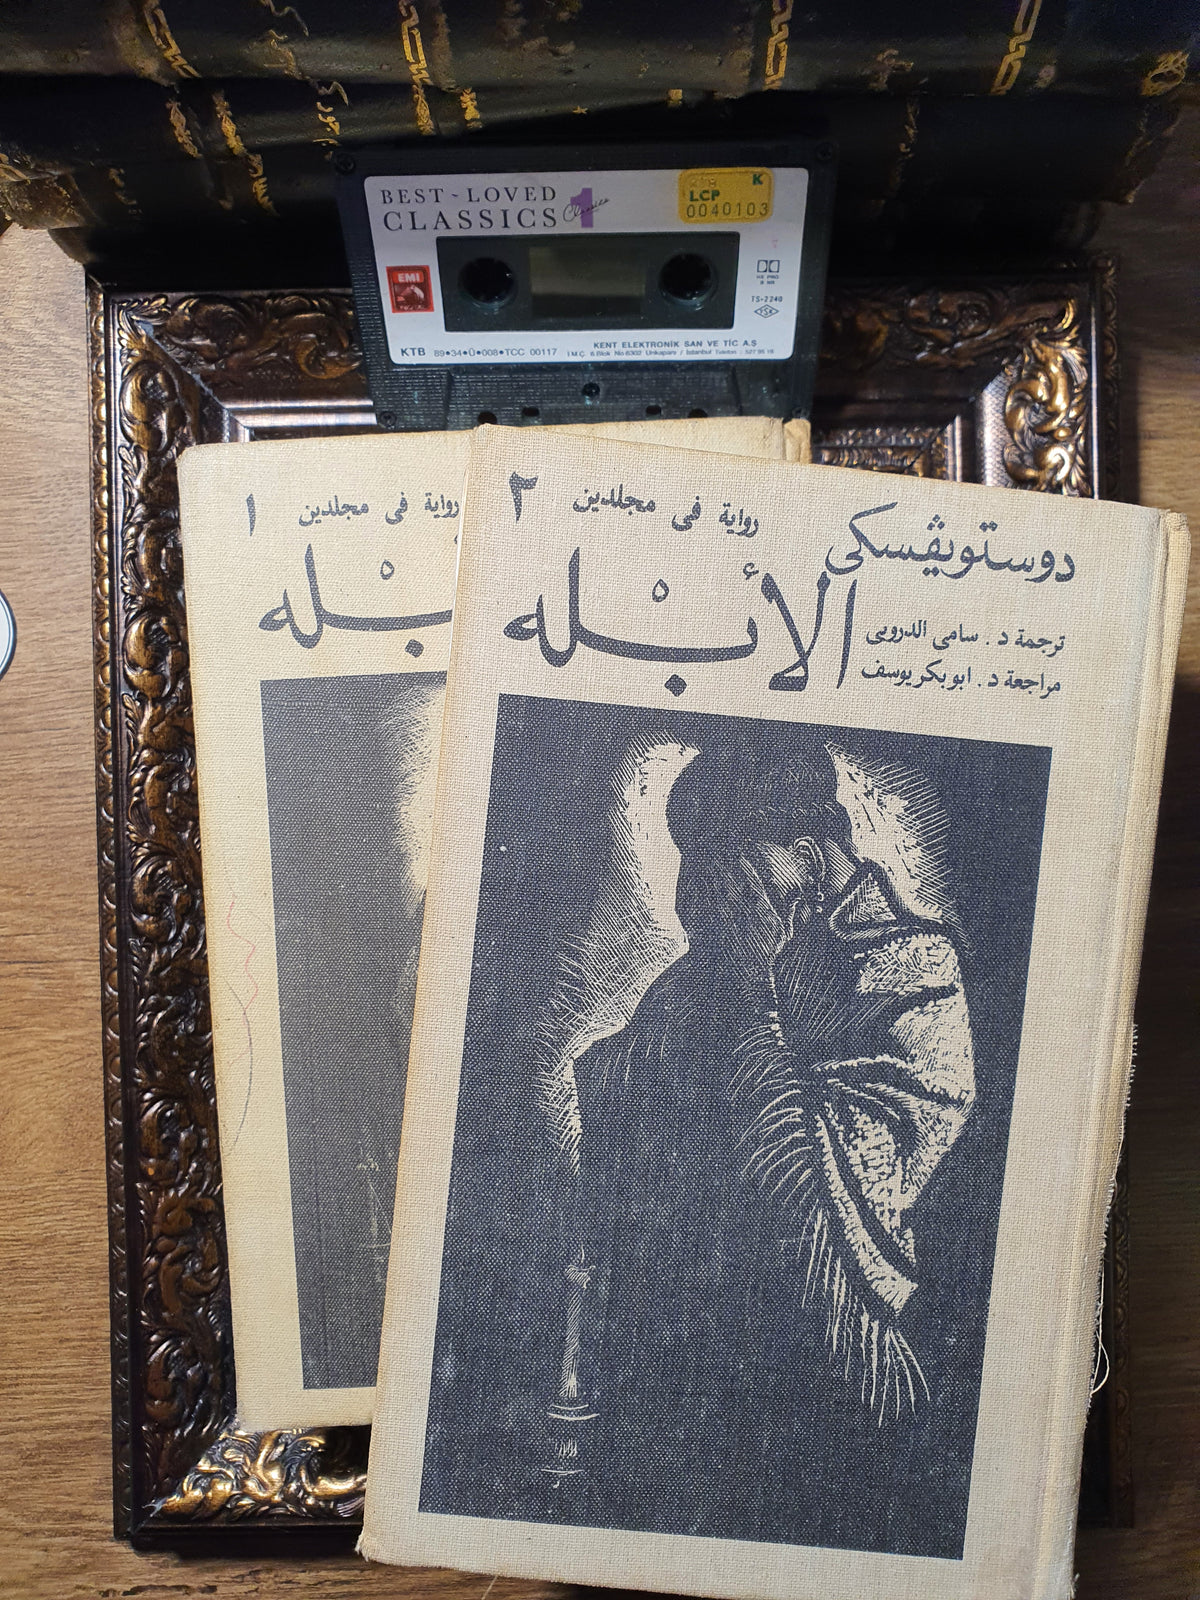 BEST~LOVED
CLASSICS 1
Classics
LCP K
0040103
EMI
HX PRO
B NR
TS-2240
TSE
KTB 89•34•Ü•008•TCC 00117
KENT ELEKTRONİK SAN VE TİC A.Ş
İ.M.Ç. 6.Blok No:6302 Unkapanı / İstanbul Telefon : 527 95 18
١ رواية في مجلدين
بْله
٢ رواية في مجلدين
دوستويڤسكي
الأبْله
ترجمة د. سامى الدروبى
مراجعة د. ابوبكر يوسف